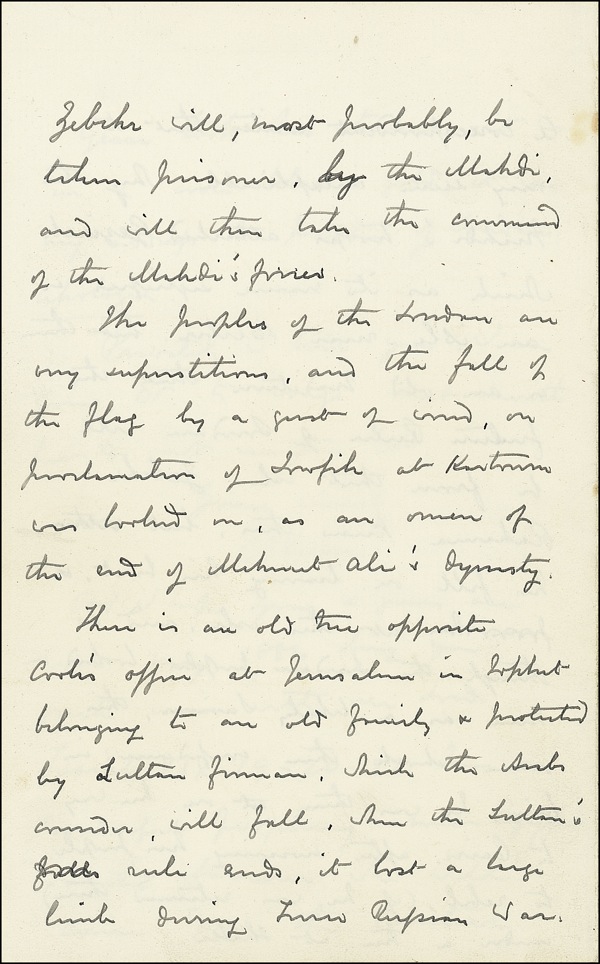 Zebehr will, most probably, be
taken prisoner, by the Mahdi,
and will then take the command
of the Mahdi's forces.
The peoples of the Soudan are
very superstitious, and the fall of
the flag by a gust of wind, on
proclamation of Towfik at Kartoum
was looked on, as an omen of
the end of Mehemet Ali's dynasty.
There is an old tree opposite
Cook's office at Jerusalem in Tophet
belonging to an old family & protected
by Sultan firman, which the Arabs
consider, will fall, when the Sultan's
rule ends, it lost a large
limb during Turco Russian War.